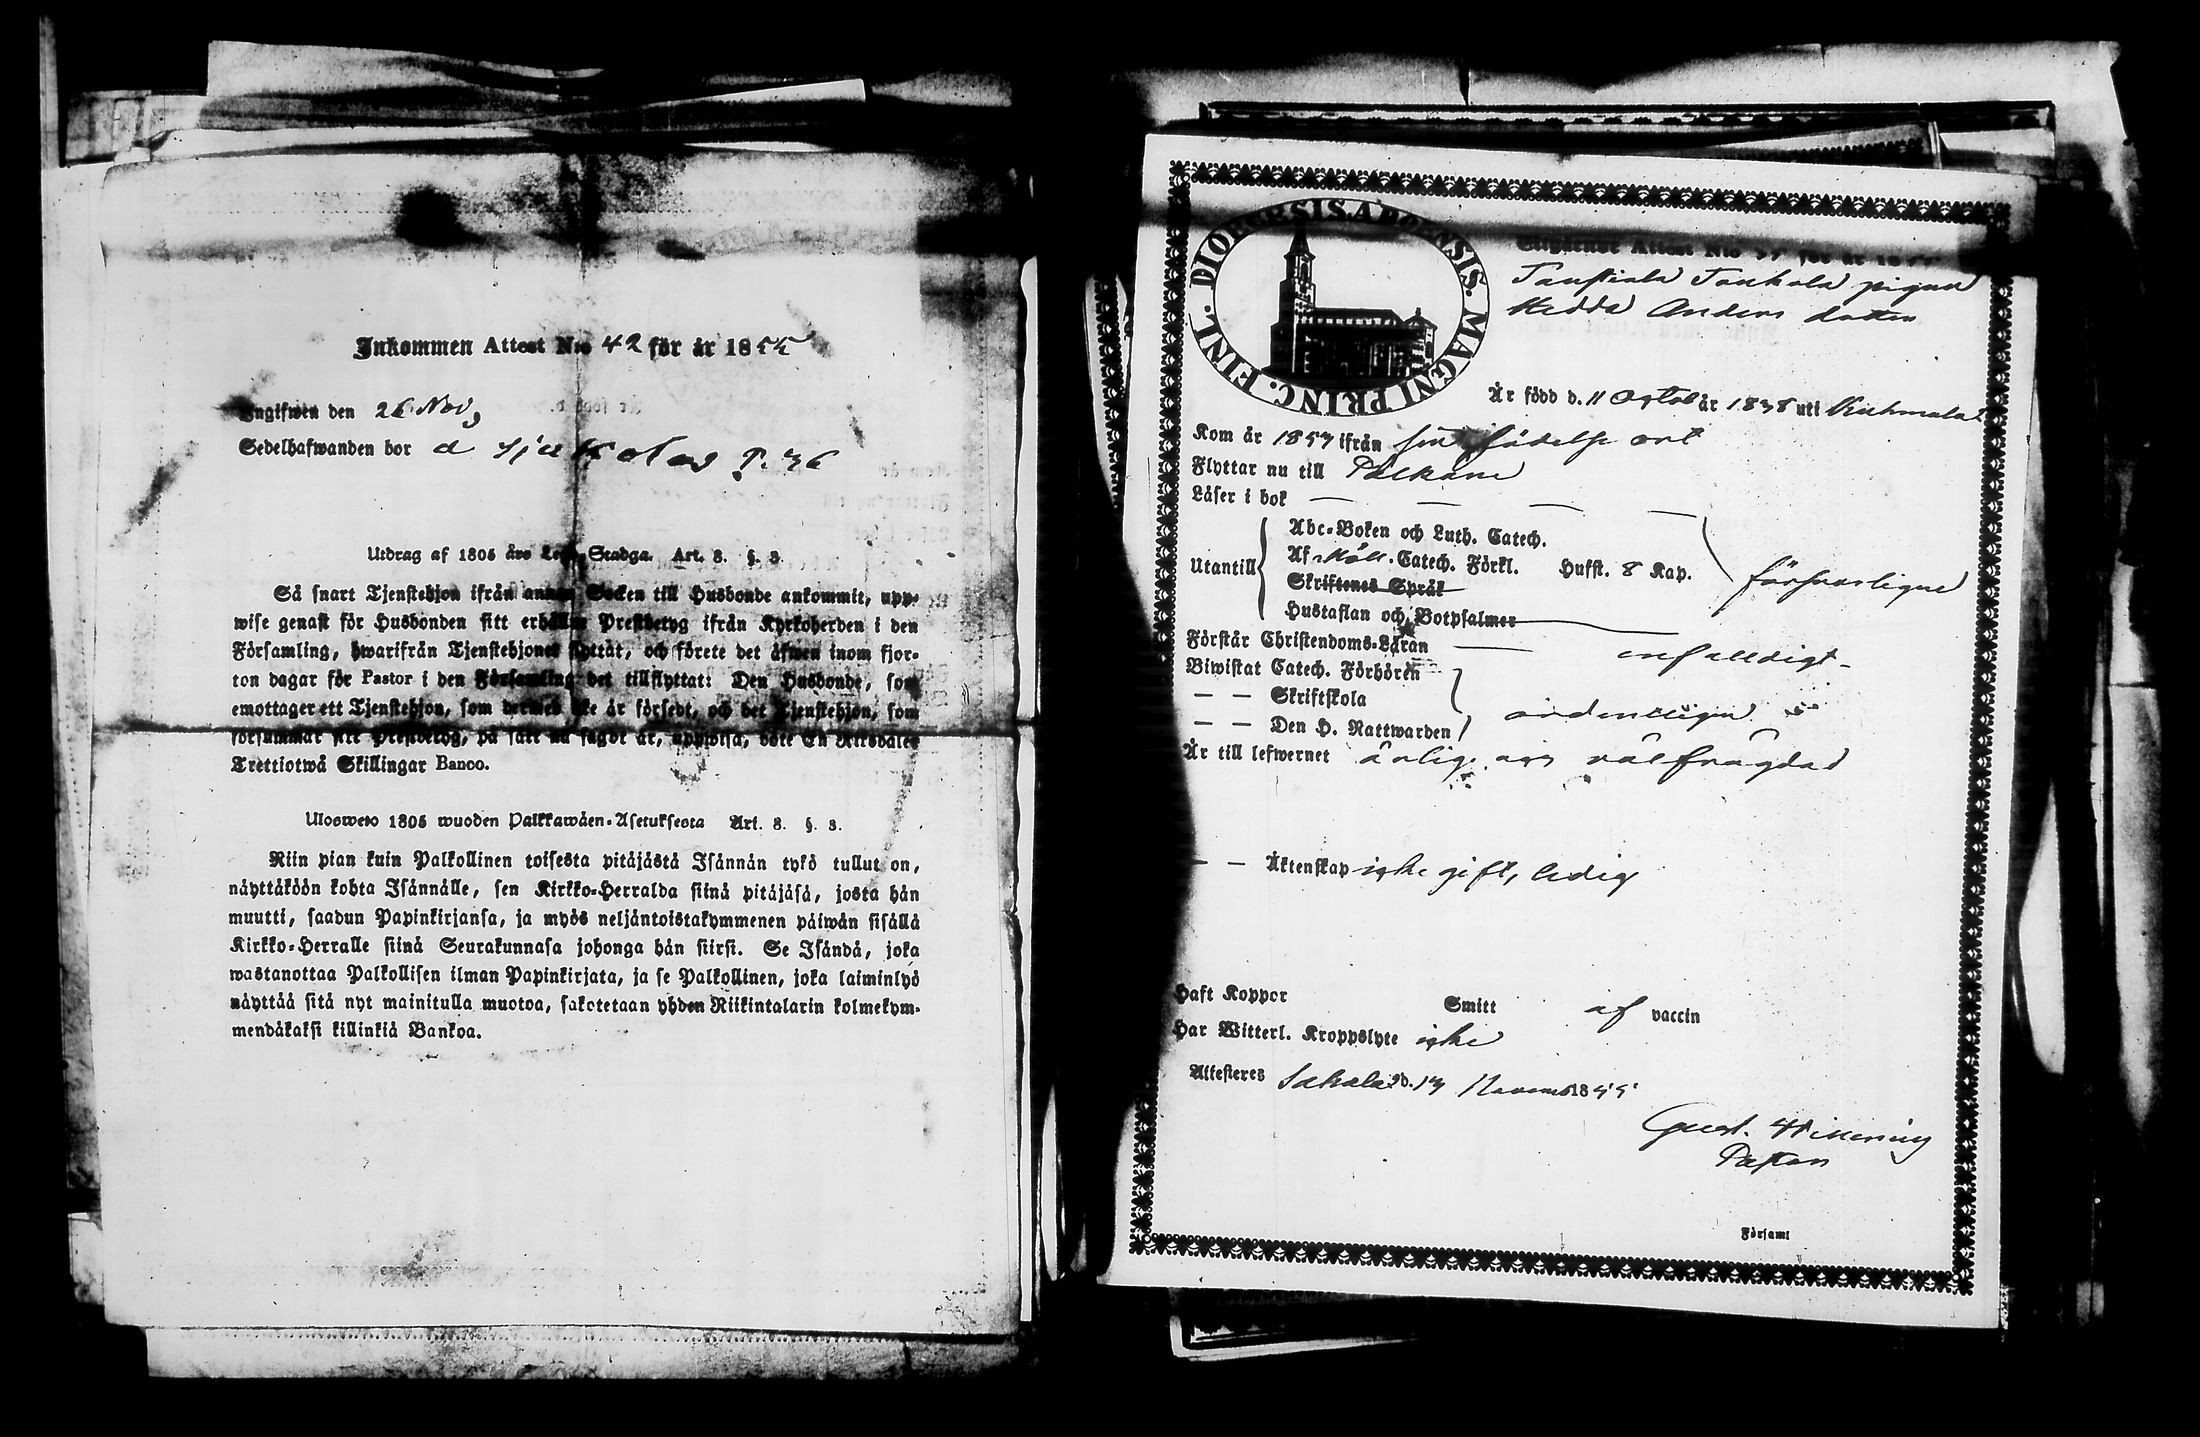 Inkommen Attest N:o 42 för år 1855
Ingifwen den 26 Nov
Sedelhafwanden bor
Utdrag af 1805 års Lego-Stadga. Art. 8. §. 3.
Så snart Tjenstehjon ifrån annan Socken till Husbonde ankommit, upp-
wise genast för Husbonden sitt erhållne Prestbetyg ifrån Kyrkoherden i den
Församling, hwarifrån Tjenstehjonet flyttat, och förete det äfwen inom fjor-
ton dagar för Pastor i den Församling det tillflyttat: Den Husbonde, som
emottager ett Tjenstehjon, som dermed icke är försedt, och det Tjenstehjon, som
försummar sitt Prestbetyg, på sätt nu sagdt är, uppwisa, böte En Riksdaler
Trettiotwå Skillingar Banco.
Uloswero 1805 wuoden Palkkawäen-Asetuksesta Art. 8. §. 3.
Niin pian kuin Palkollinen toisesta pitäjästä Isännän tykö tullut on,
näyttäköön kohta Isännälle, sen Kirkko-Herralda siinä pitäjäsä, josta hän
muutti, saadun Papinkirjansa, ja myös neljäntoistakymmenen päiwän sisällä
Kirkko-Herralle siinä Seurakunnasa johonga hän siirsi. Se Isändä, joka
wastanottaa Palkollisen ilman Papinkirjata, ja se Palkollinen, joka laiminlyö
näyttää sitä nyt mainitulla muotoa, sakotetaan yhden Riikintalarin kolmekym-
mendäkaksi killinkiä Bankoa.
DIOECESIS ABOENSIS. MAGNI PRINC. FINL.
Utgående Attest N:o för år 1855
pigan
Hedda Anders dotter
Är född d. 11 October år 1838 uti Kuhmalax
Kom år 1854 ifrån sin födelse ort
Flyttar nu till Pälkäne
Läser i bok — — — —
Abc-Boken och Luth. Catech.
Utantill Af Möll. Catech. Förkl. Hufst. 8 Kap. försvarligen
Skriftenes Språk
Hustaflan och Botpsalmer
Förstår Christendoms-Läran — enfaldigt
Biwistat Catech. Förhören
— — Skriftskola ordentligen
— — Den H. Nattwarden
Är till lefwernet ärlig och välfrägdad
— — Äktenskap icke gift, ledig
Haft Koppor Smitt af vaccin
Har Witterl. Kroppslyte icke
Attesteres Sahalax d. 14 Novemb 1855
Gust.
Pastor
Församl